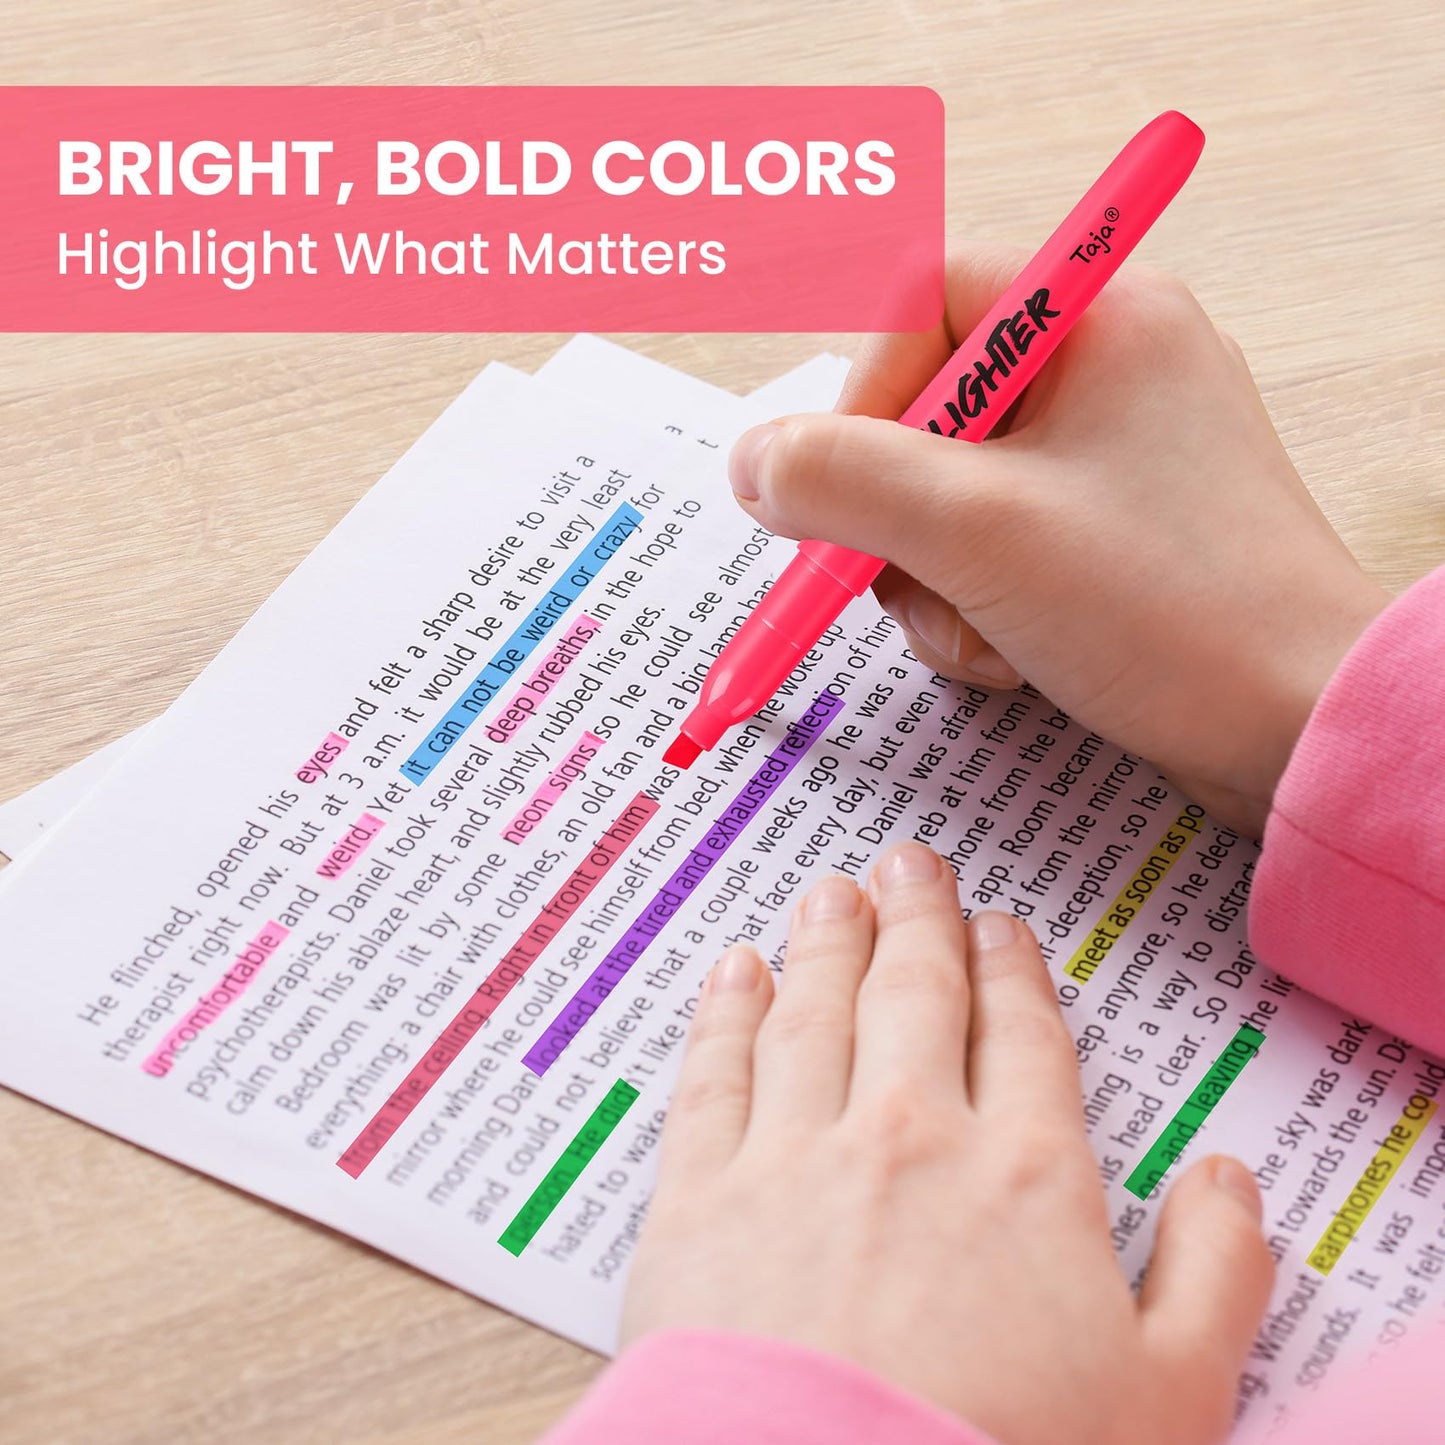 BRIGHT, BOLD COLORS
Highlight What Matters
Taja®
LIGHTER
He flinched, opened his eyes and felt a sharp desire to visit a
therapist right now. But at 3 a.m. it would be at the very least
uncomfortable and weird. Yet it can not be weird or crazy for
psychotherapists. Daniel took several deep breaths, in the hope to
calm down his ablaze heart, and slightly rubbed his eyes.
Bedroom was lit by some neon signs so he could see almost
everything: a chair with clothes, an old fan and a big lamp
from the ceiling. Right in front of him was
mirror where he could see himself from bed, when he woke up
morning Dan looked at the tired and exhausted reflection of him
and could not believe that a couple weeks ago he was a
person. He didn't like to that face every day, but even
hated to wake ht. Daniel was afraid
reb at him from it
phone from the be
app. Room became
d from the mirror
r-deception, so he
to meet as soon as po
eep anymore, so he deci
ning is a way to distract
is head clear. So Dan
on and leaving the li
the sky was dark
n towards the sun. Da
Without earphones he could
sounds. It was impo
so he felt s